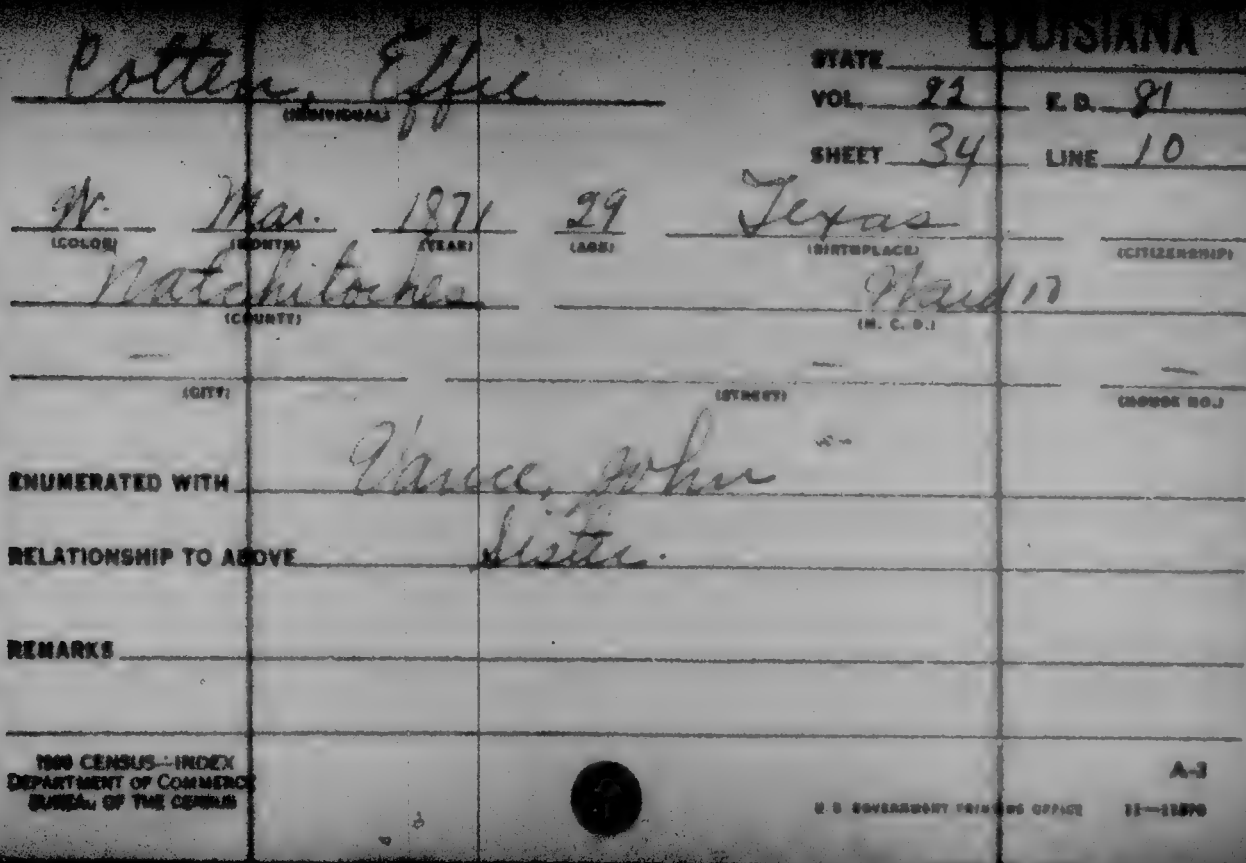 LOUISIANA
Cotten, Effie STATE
(INDIVIDUAL) VOL. 22 E. D. 81
SHEET 34 LINE 10
W. Mar. 1871 29 Texas
(COLOR) (MONTH) (YEAR) (AGE) (BIRTHPLACE) (CITIZENSHIP)
Natchitoches Ward
(COUNTY) (M. C. D.)
— — —
(CITY) (STREET) (HOUSE NO.)
ENUMERATED WITH Vance, John
RELATIONSHIP TO ABOVE Sister.
REMARKS
1900 CENSUS—INDEX
DEPARTMENT OF COMMERCE A-3
BUREAU OF THE CENSUS U. S. GOVERNMENT PRINTING OFFICE